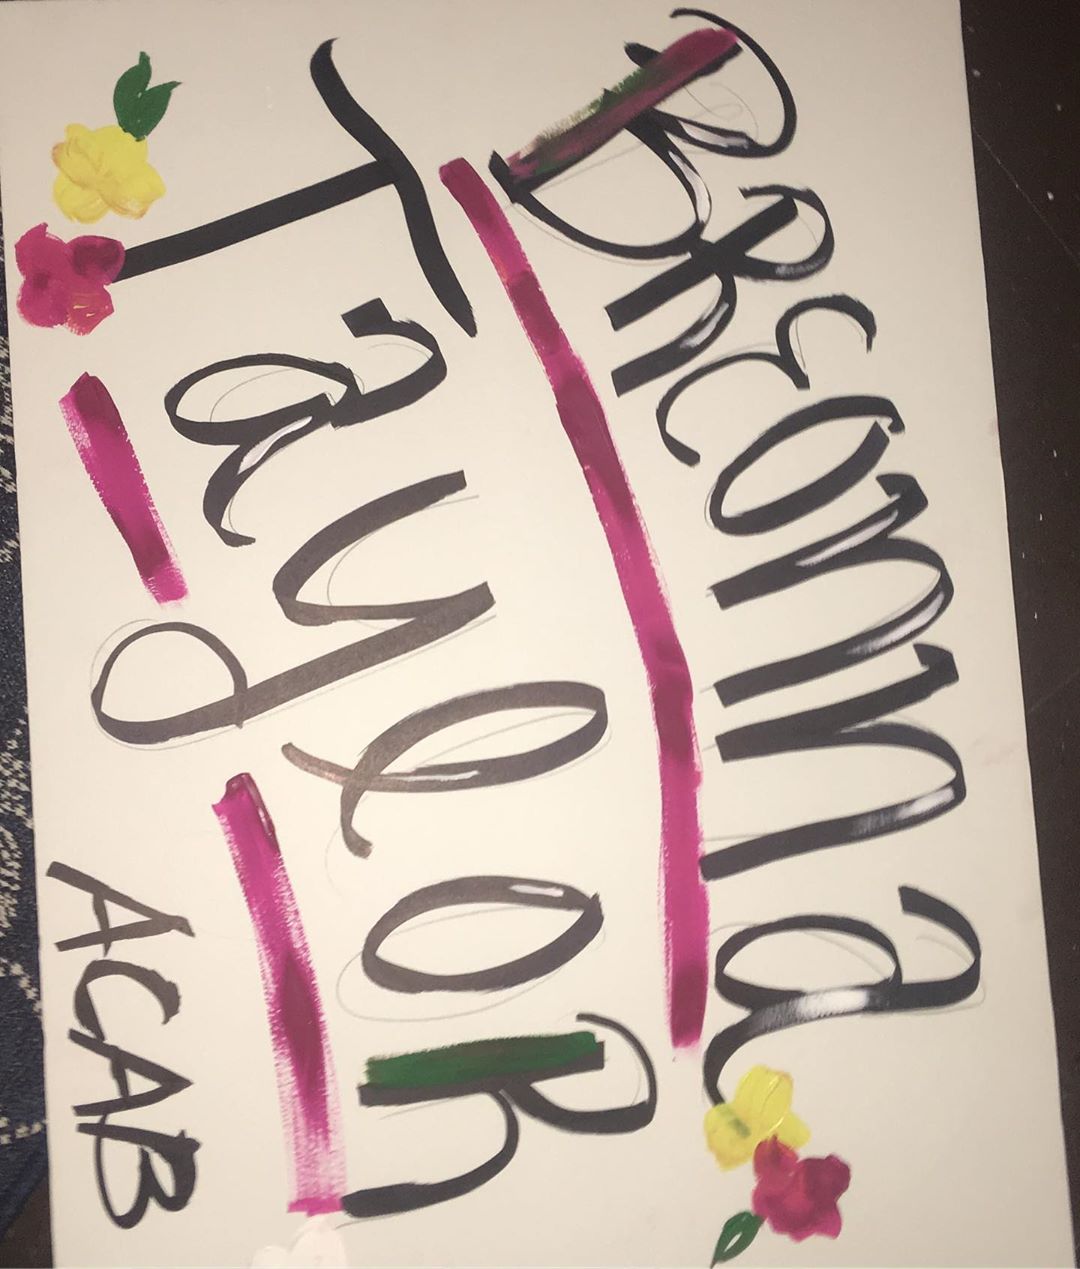 BReonna
Taylor
ACAB